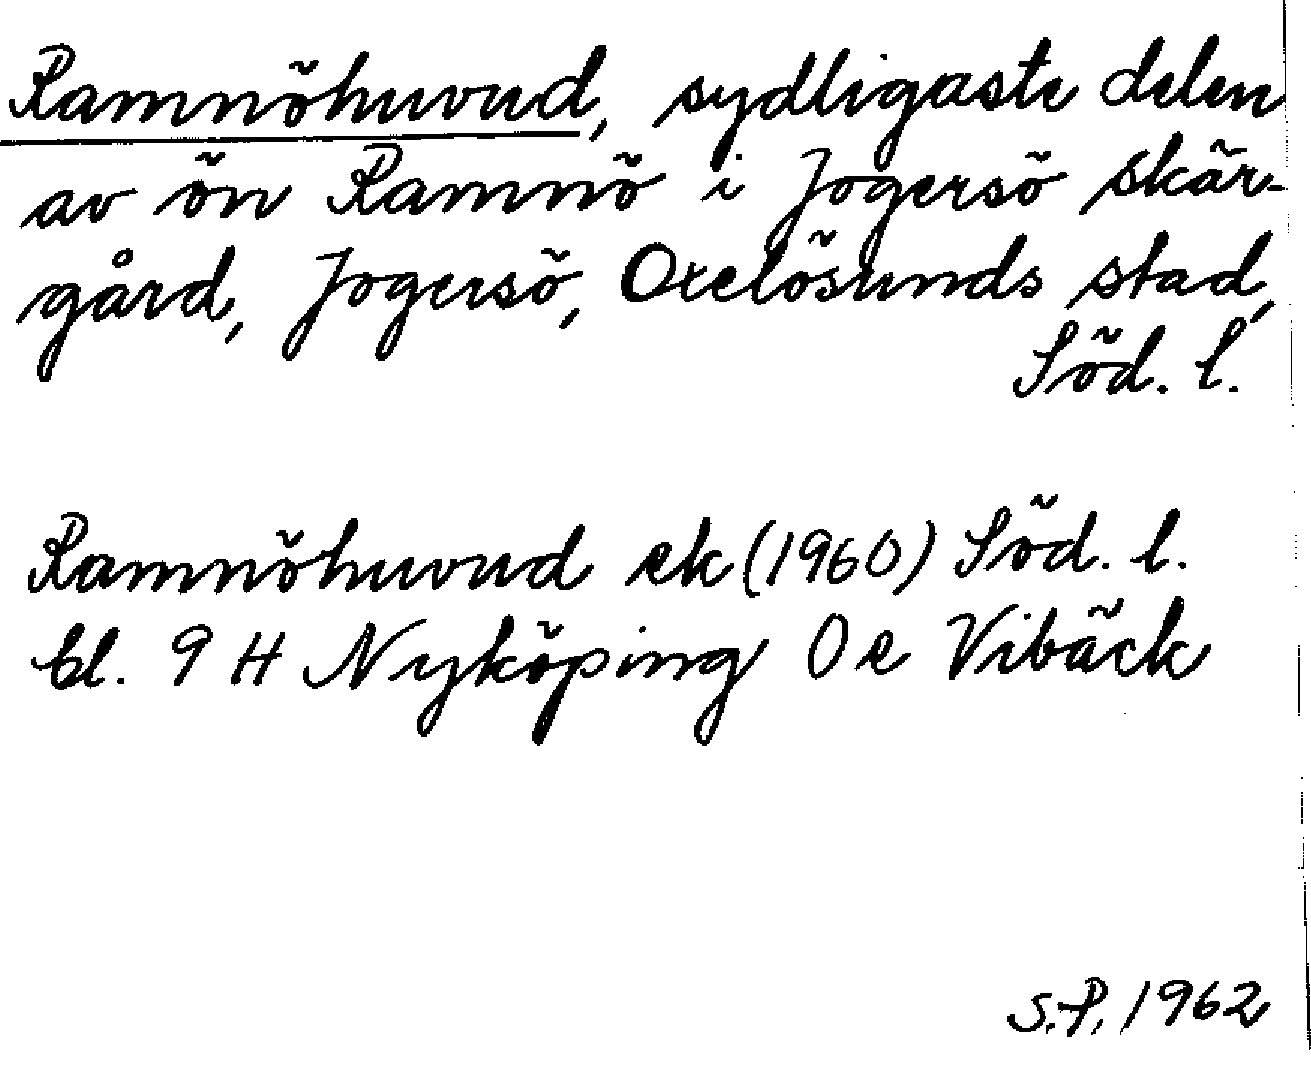 Ramnöhuvud, sydligaste delen
av ön Ramnö i Jogersö skär-
gård, Jogersö, Oxelösunds stad,
Söd. l.
Ramnöhuvud ek (1960) Söd. l.
bl. 9 H Nyköping Oe Vibäck
S.P. 1962